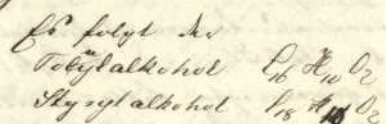 Es folgt der
Tolylalkohol C16 H10 O2
Styrylalkohol C18 H10 O2